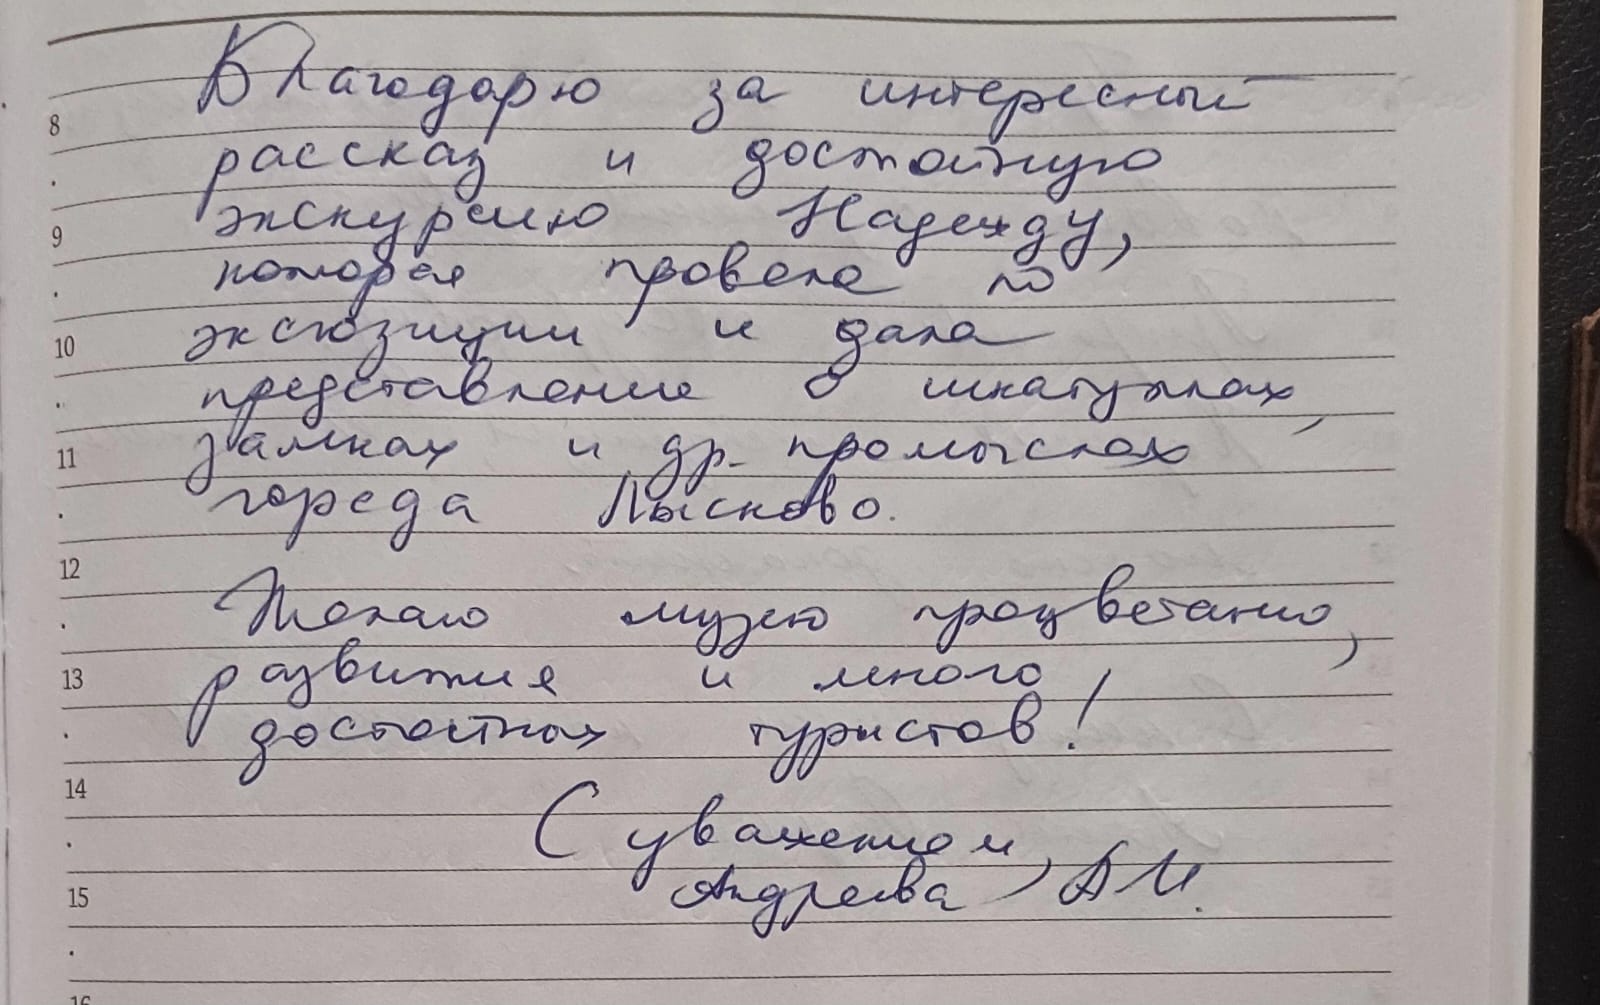 Благодарю за интересный
8
рассказ и достойную
экскурсию Надежду,
9
которая провела по
экспозиции и дала
10
представление о шкатулках,
замках и др. промыслах
11
города Лысково.
12
Желаю музею процветания,
развития и много
13
достойных туристов!
14
С уважением,
Андреева А И.
15
16